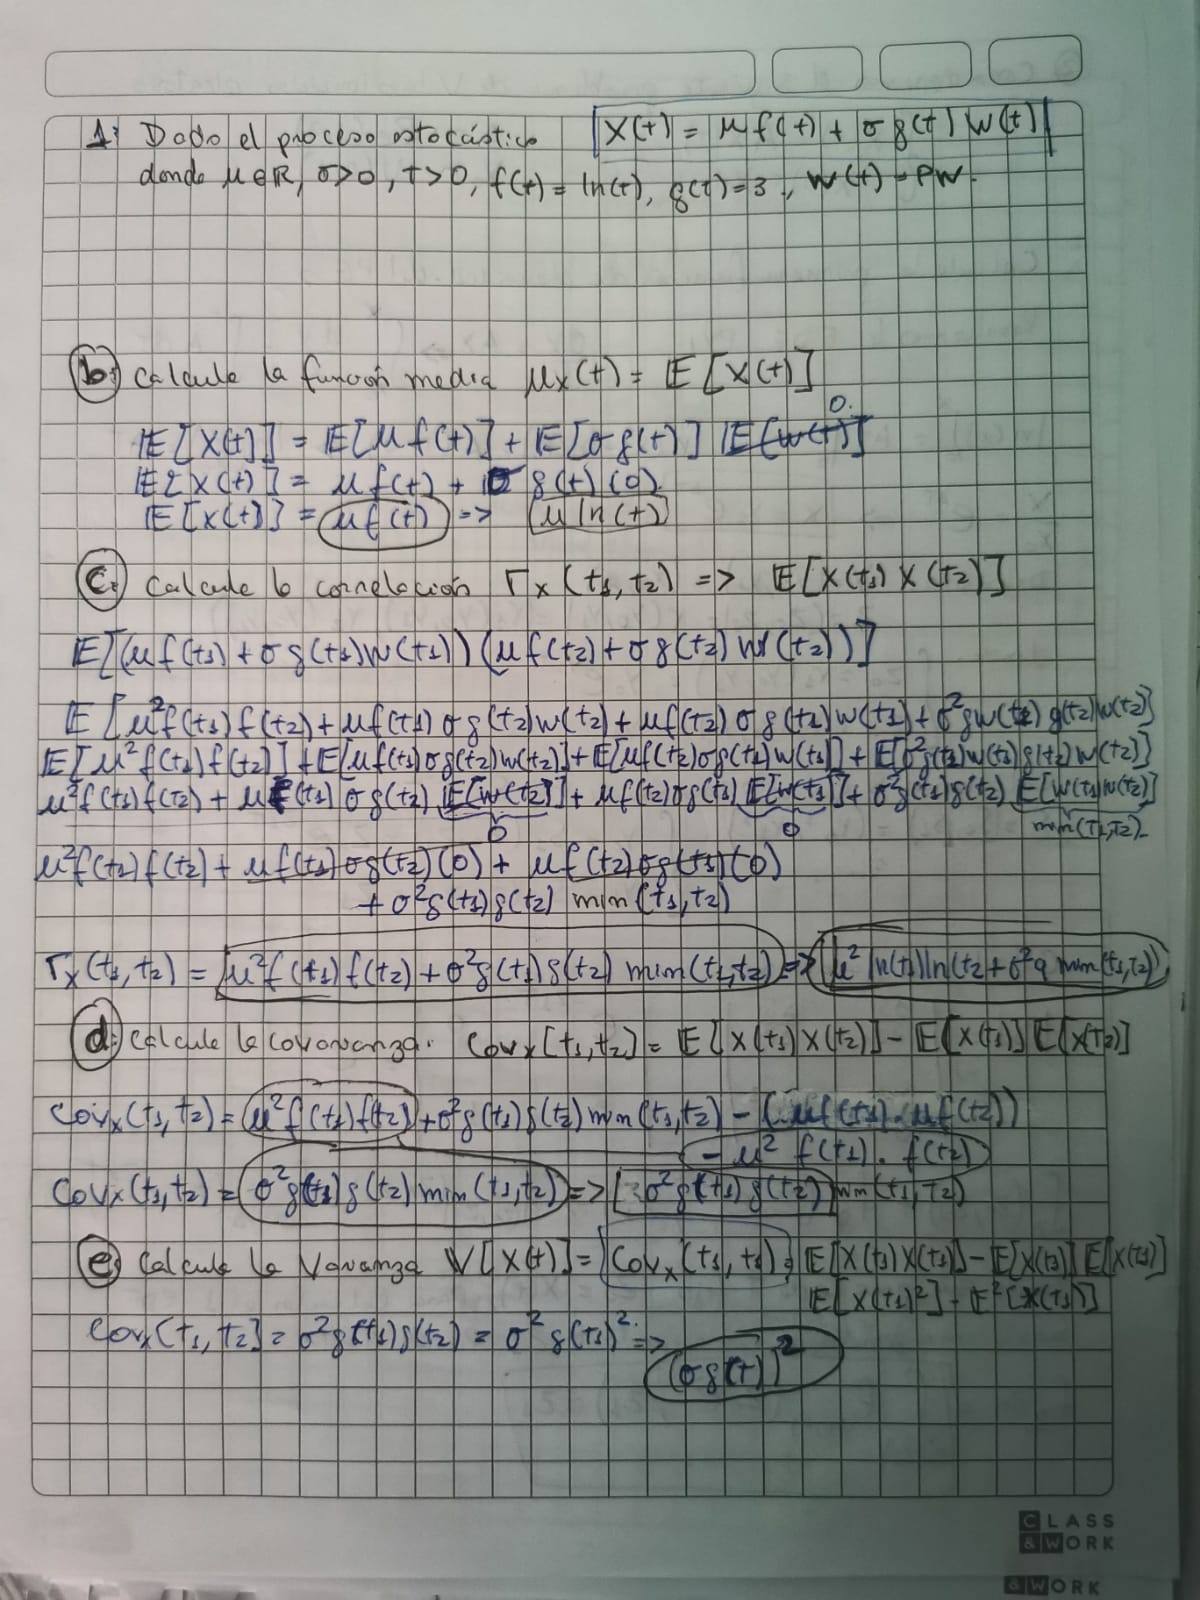 1: Dado el proceso estocástico X(t) = μ f(t) + σ g(t) W(t)
donde μ∈R, σ>0, t>0, f(t) = ln(t), g(t)=3, W(t) = PW.
b: Calcule la función media μx(t) = E[X(t)]
E[X(t)] = E[μ f(t)] + E[σ g(t)] E[W(t)] 0.
E[X(t)] = μ f(t) + σ g(t) (0)
E[X(t)] = μ f(t) => μ ln(t)
c: Calcule la correlación rx(t1, t2) => E[X(t1) X(t2)]
E[(μ f(t1) + σ g(t1) W(t1)) (μ f(t2) + σ g(t2) W(t2))]
E[μ²f(t1) f(t2) + μ f(t1) σ g(t2) W(t2) + μ f(t2) σ g(t2) W(t1) + σ² g W(t2) g(t2) W(t2)]
E[μ² f(t1) f(t2)] + E[μ f(t1) σ g(t2) W(t2)] + E[μ f(t2) σ g(t1) W(t1)] + E[σ² g(t1) W(t1) g(t2) W(t2)]
μ²f(t1) f(t2) + μ f(t1) σ g(t2) E[W(t2)] + μ f(t2) σ g(t1) E[W(t1)] + σ² g(t1) g(t2) E[W(t1) W(t2)]
0 0 min(t1,t2)
μ²f(t2) f(t2) + μ f(t1) σ g(t2) (0) + μ f(t2) σ g(t1) (0)
+ σ² g(t1) g(t2) min(t1, t2)
rx(t1, t2) = μ² f(t1) f(t2) + σ² g(t1) g(t2) min(t1,t2) => μ² ln(t1) ln(t2 + σ² 9 min(t1,t2)
d: Calcule la covarianza. Covx[t1, t2] = E[X(t1) X(t2)] - E[X(t1)] E[X(t2)]
Covx(t1, t2) = μ² f(t1) f(t2) + σ² g(t1) g(t2) min(t1, t2) - (μ f(t1) · μ f(t2))
- μ² f(t1) · f(t2)
Covx(t1, t2) = σ² g(t1) g(t2) min(t1, t2) => σ² g(t1) g(t2) min(t1, t2)
e: Calcule la Varianza V[X(t)] = Covx(t1, t1) = E[X(t1) X(t1)] - E[X(t1)] E[X(t1)]
E[X(t1)²] - E²[X(t1)]
Covx[t1, t2] = σ² g(t1) g(t2) = σ² g(t1)² =>
(σ g(t))²
CLASS
&WORK
&WORK